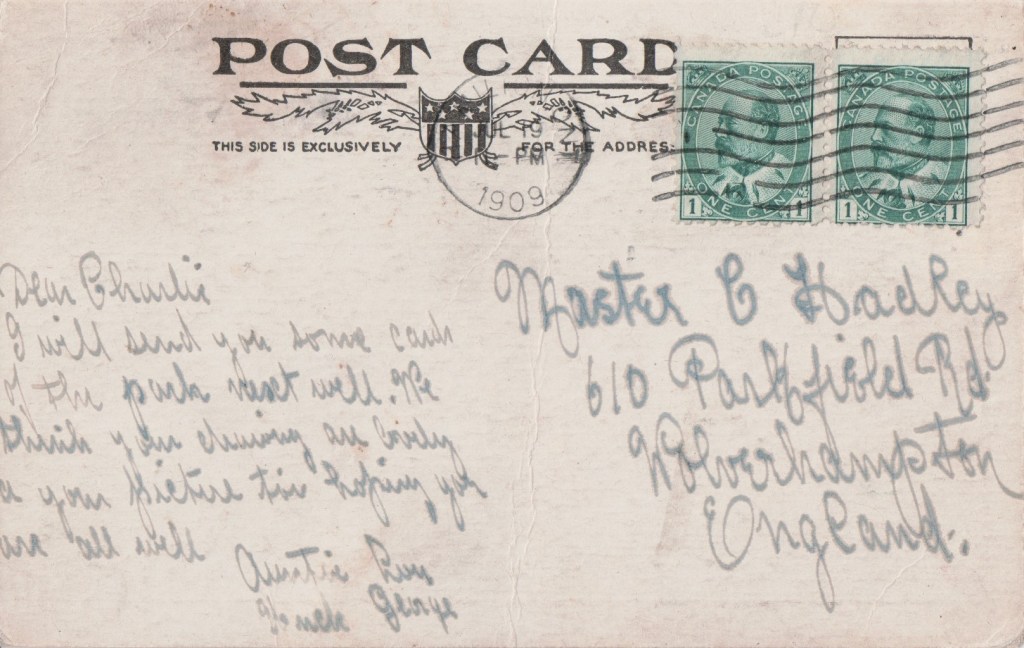 POST CARD
THIS SIDE IS EXCLUSIVELY FOR THE ADDRES
19
PM
1909
CANADA POSTAGE
ONE CENT
1 1
CANADA POSTAGE
ONE CENT
1 1
Dear Charlie
I will send you some cards
of the park next well. We
think your drawing are lovely
a your picture too hoping you
are all well
Auntie
George
Master C Hadley
610 Parkfield Rd
Wolverhampton
England.